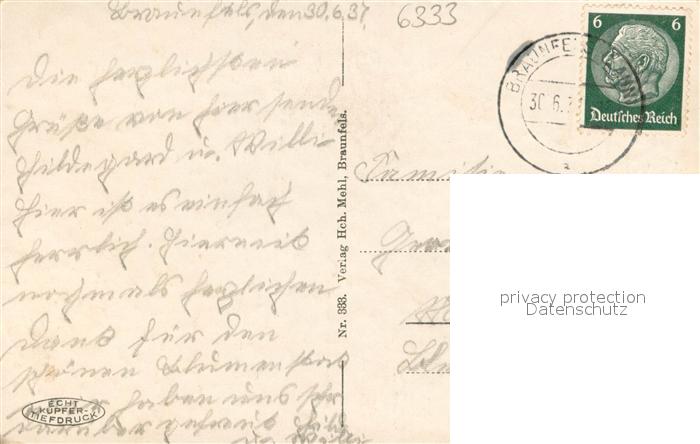 Braunfels, den 30.6.37.
6333
6 6
Deutsches Reich
BRAUNFELS
30.6.
a
Die herzlichsten
Grüße von hier senden
Hildegard u. Willi
Hier ist es einfach
herrlich. Hiermit
nochmals herzlichen
Dank für den
schönen Blumenstock
haben uns sehr
darüber gefreut
Willi
Nr. 333. Verlag Hch. Mehl, Braunfels.
Familie
privacy protection
Datenschutz
ECHT
KUPFER-
TIEFDRUCK